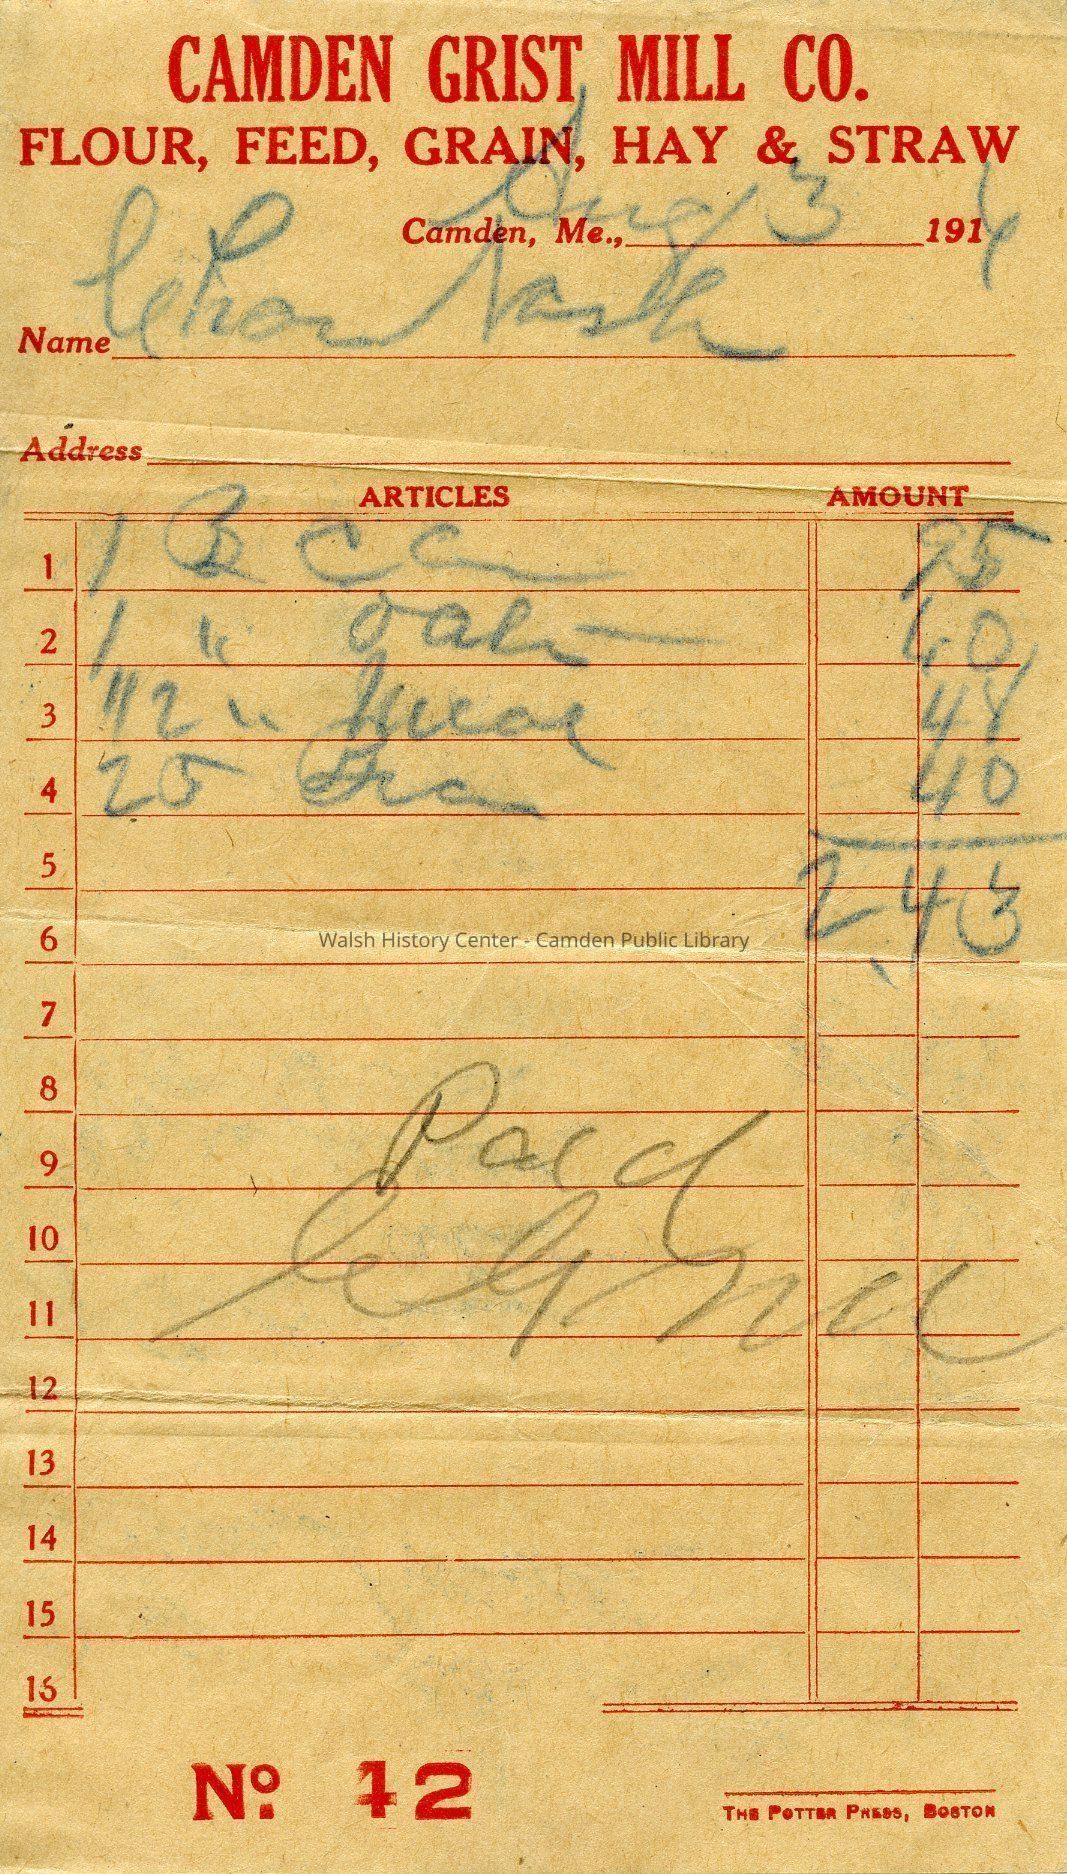 CAMDEN GRIST MILL CO.
FLOUR, FEED, GRAIN, HAY & STRAW
Camden, Me., Aug 3 1914
Name Nash
Address
ARTICLES AMOUNT
1 1 B C 95
2 1 " Oats 60
3 1/2 " Meal 48
4 25 Bran 40
5 2.43
6
Walsh History Center - Camden Public Library
7
8
9 Paid
10
11
12
13
14
15
16
No. 42
THE POTTER PRESS, BOSTON